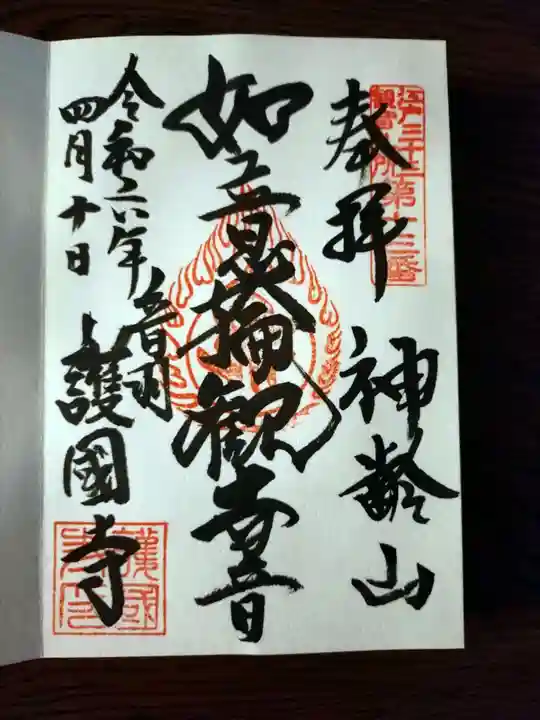 江戸三十三
観音札所
第十三番
奉拝
神齢山
如意輪観世音
令和六年
四月十日
音羽
護國寺
護國寺印